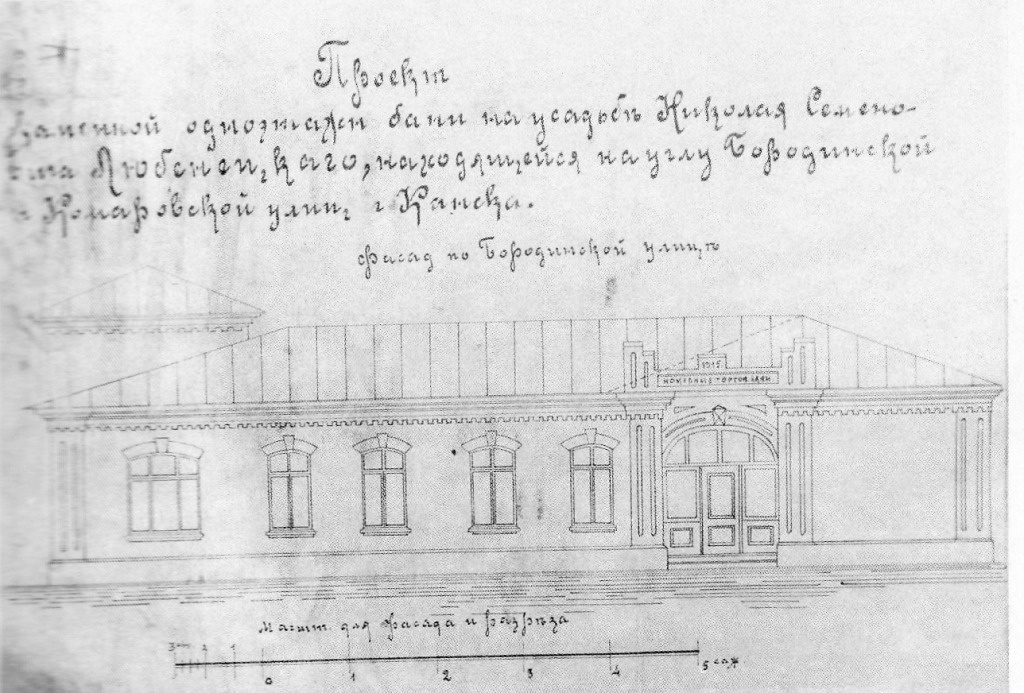 Проект
Каменной одноэтажн бани на усадьбѣ Николая Семено-
вича Любенецкаго, находящейся на углу Бородинской
и Комаровской улиц г Канска.
фасад по Бородинской улицѣ
1915
НОМЕРНЫЕ ТОРГОВ БАНИ
Масшт. для фасада и разрѣза
3 2 1 0 1 2 3 4 5 саж.